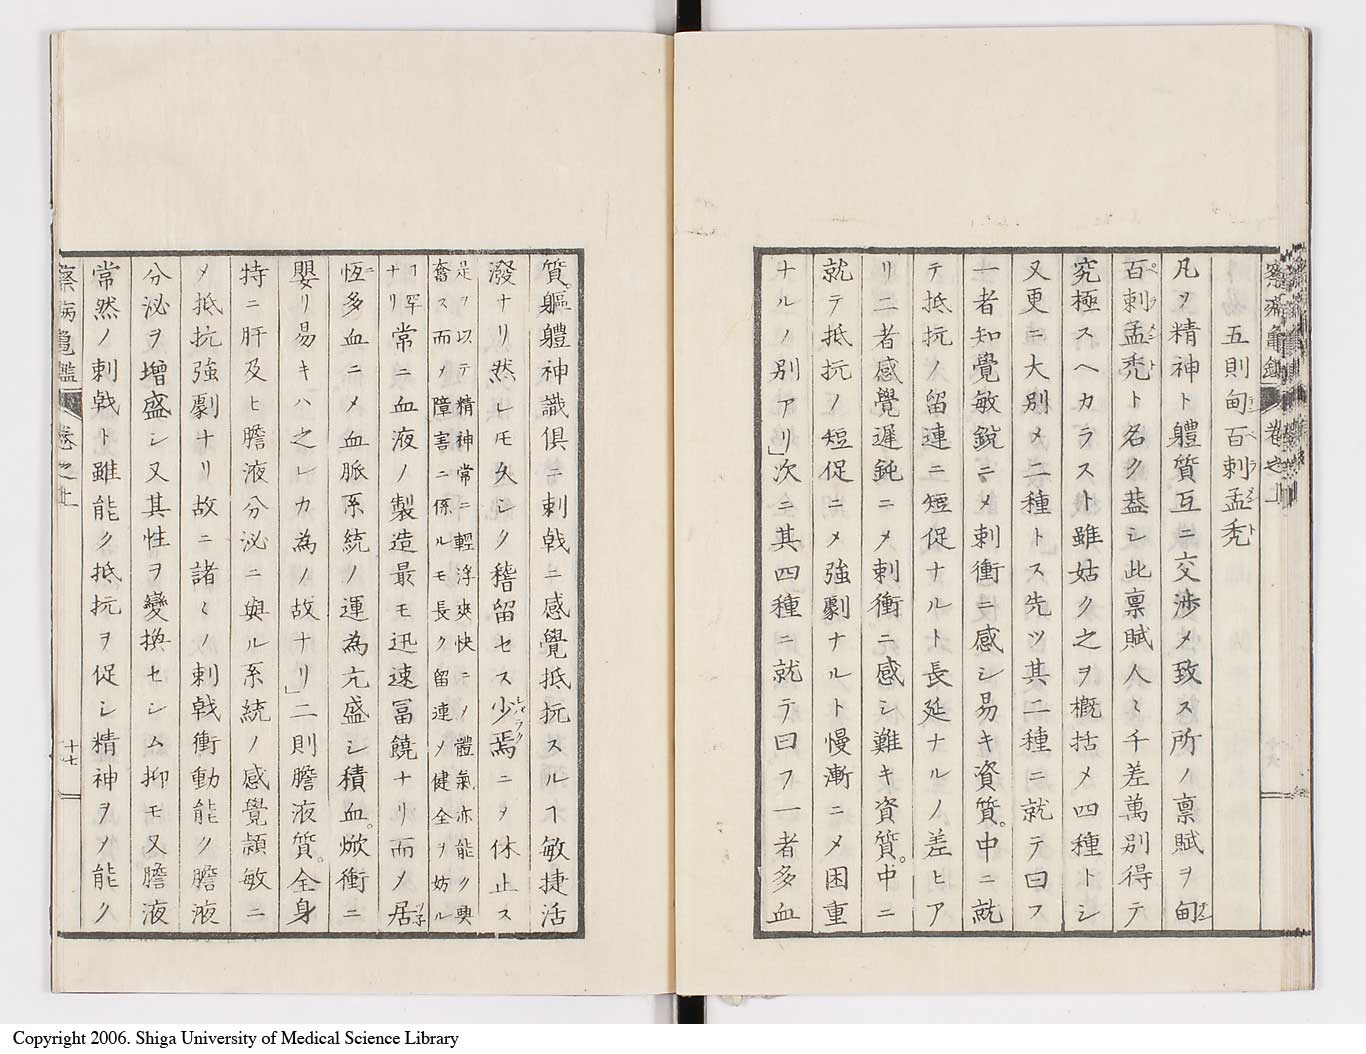 察病龜鑑 卷之上
五則甸百剌孟禿
凡ソ精神ト軆質互ニ交渉メ致ス所ノ禀賦ヲ甸
百剌孟禿ト名ク蓋シ此禀賦人々千差萬別得テ
究極スヘカラスト雖姑ク之ヲ概括メ四種トシ
又更ニ大別メ二種トス先ツ其二種ニ就テ曰フ
一者知覺敏鋭ニメ刺衝ニ感シ易キ資質。中ニ就
テ抵抗ノ留連ニ短促ナルト長延ナルノ差ヒア
リ二者感覺遲鈍ニメ刺衝ニ感シ難キ資質。中ニ
就テ抵抗ノ短促ニメ強劇ナルト慢漸ニメ困重
ナルノ別アリ」次ニ其四種ニ就テ曰フ一者多血
質。軀軆神識俱ニ刺戟ニ感覺抵抗スルヿ敏捷活
潑ナリ然レモ久シク稽留セス少焉ニメ休止ス
是ヲ以テ精神常ニ輕浮爽快ニノ體氣亦能ク興
奮ス而ノ障害ニ係ルモ長ク留連ノ健全ヲ妨ル
ヿ罕
ナリ常ニ血液ノ製造最モ迅速冨饒ナリ而メ居
恆多血ニメ血脈系統ノ運為亢盛シ積血。焮衝ニ
嬰リ易キハ之レカ為ノ故ナリ」二則膽液質。全身
特ニ肝及ヒ膽液分泌ニ與ル系統ノ感覺頴敏ニ
メ抵抗強劇ナリ故ニ諸々ノ刺戟衝動能ク膽液
分泌ヲ增盛シ又其性ヲ變換セシム抑モ又膽液
常然ノ刺戟ト雖能ク抵抗ヲ促シ精神ヲノ能ク
察病龜鑑 卷之上 十七
Copyright 2006. Shiga University of Medical Science Library